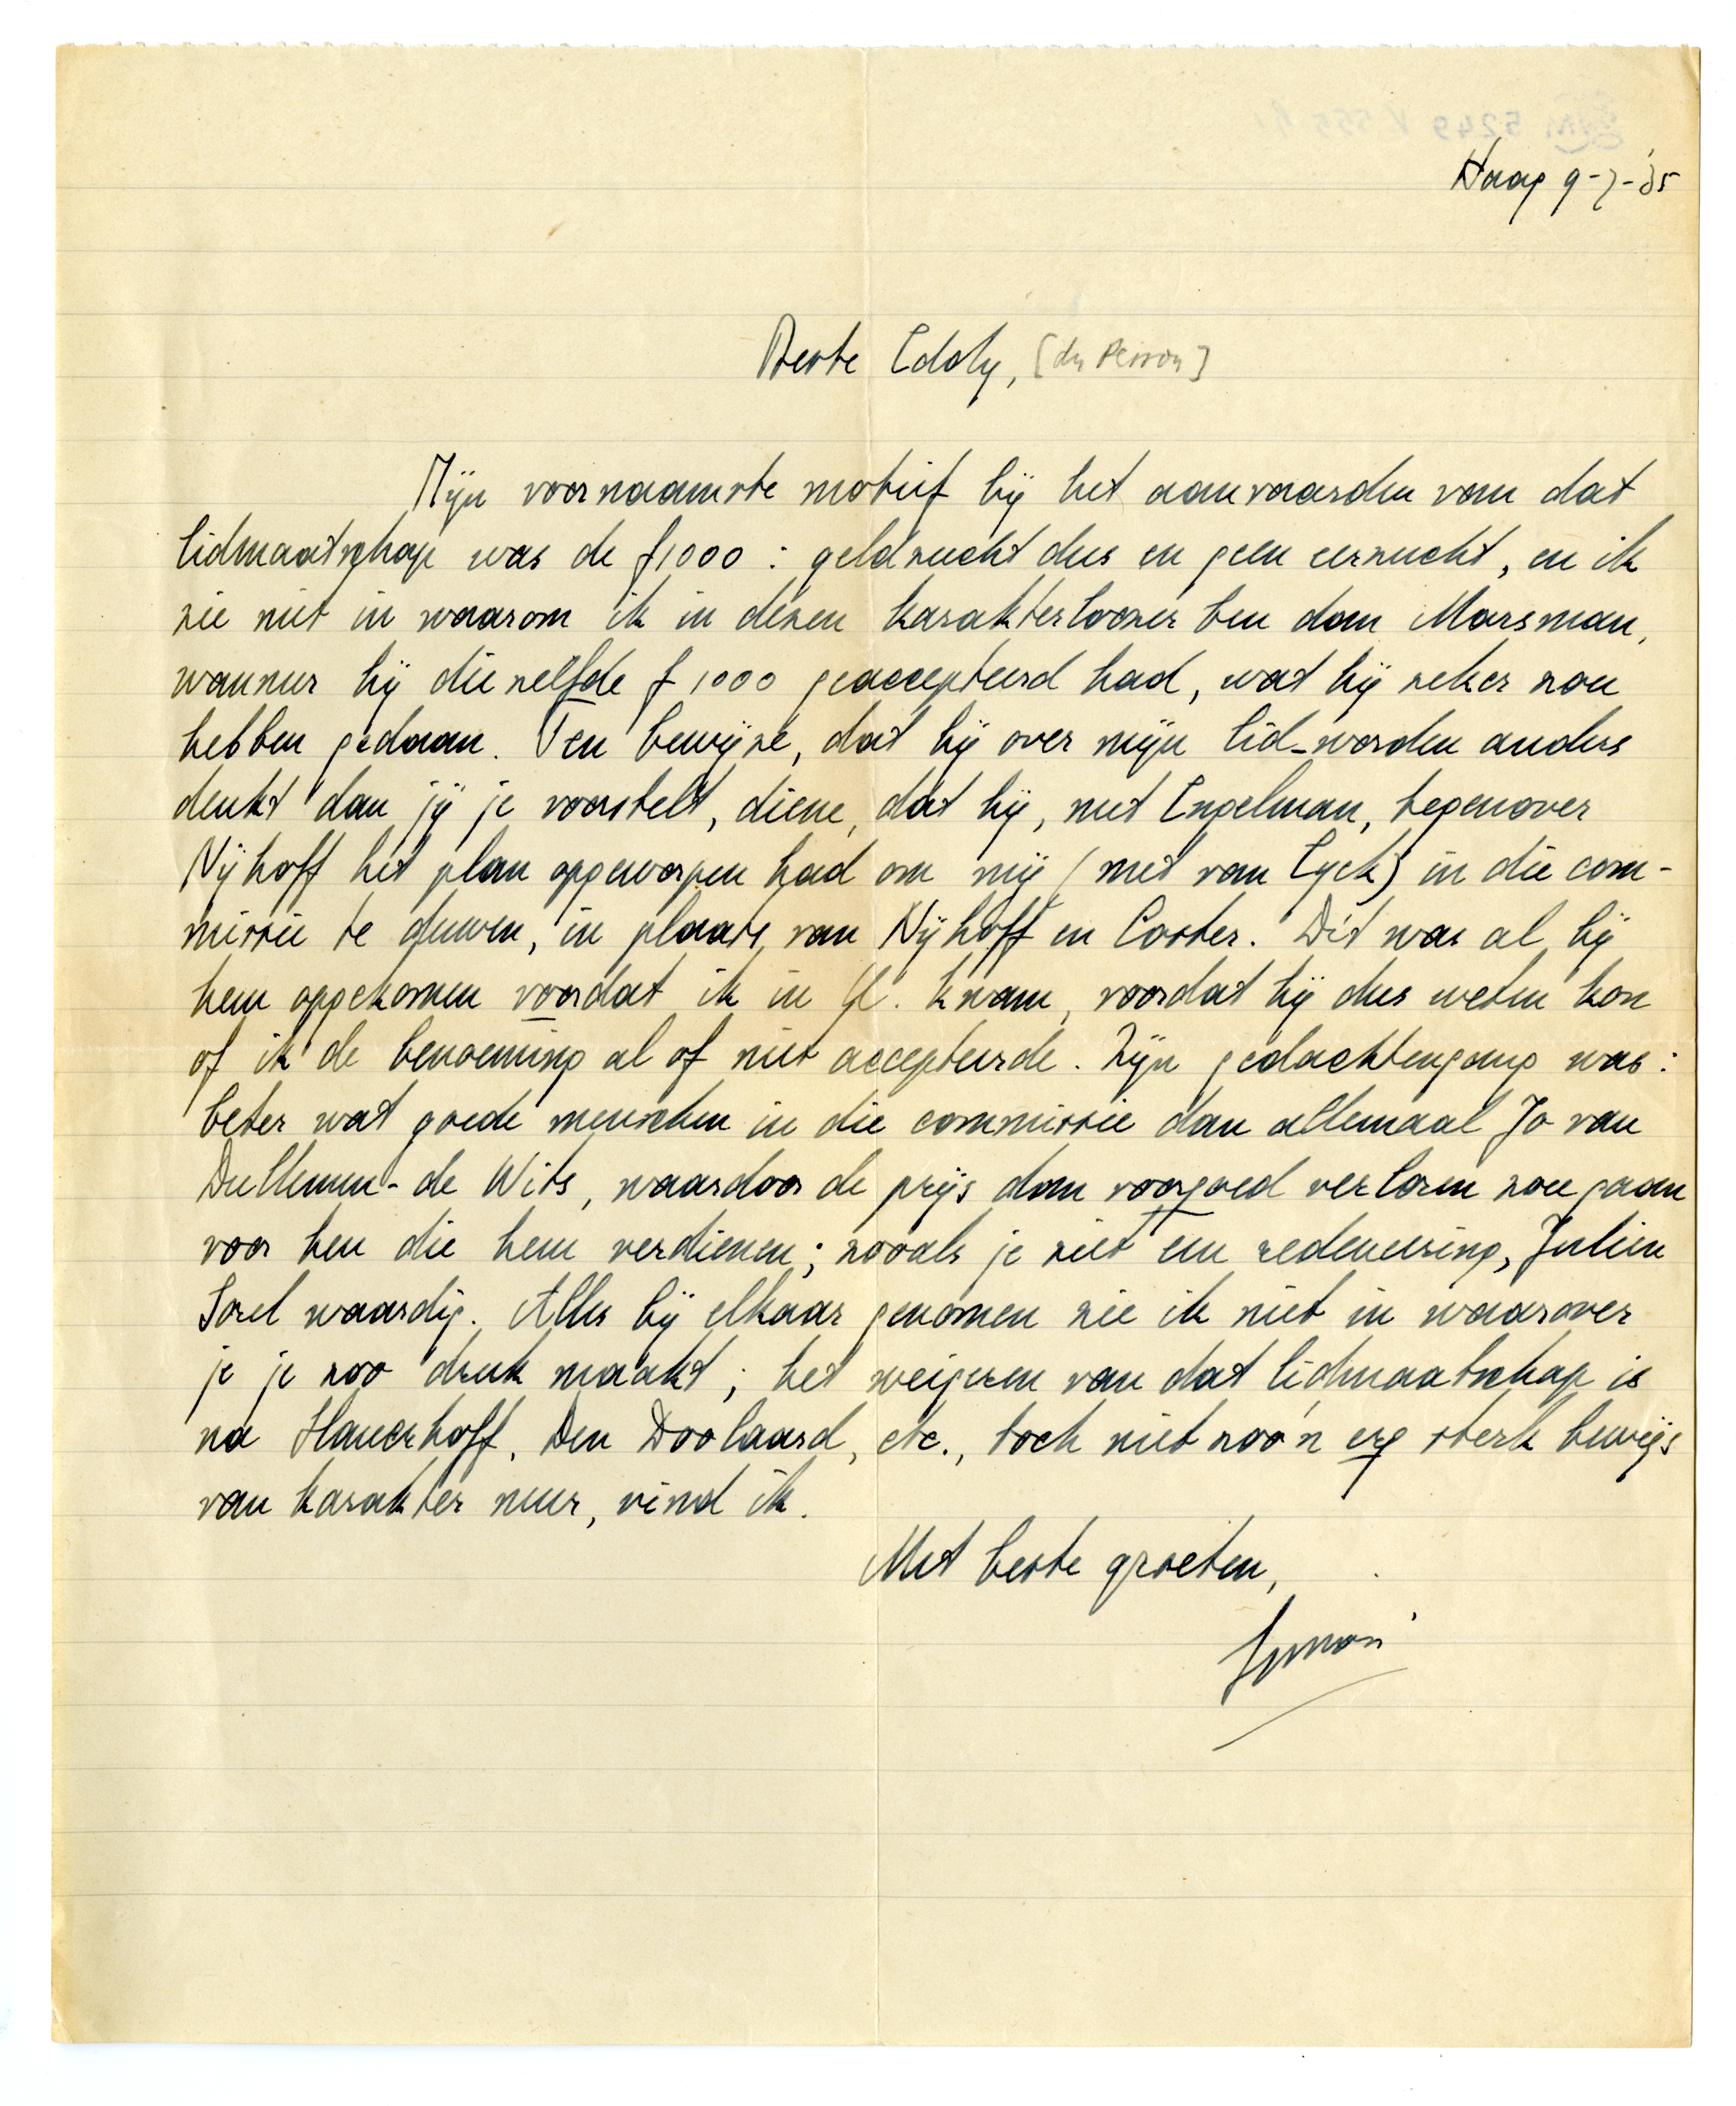 Haag 9-7-'35
Beste Eddy, [du Perron]
Mijn voornaamste motief bij het aanvaarden van dat
lidmaatschap was de f1000 : geldzucht dus en geen eerzucht, en ik
zie niet in waarom ik in dezen karakterloozer ben dan Marsman,
wanneer hij diezelfde f 1000 geaccepteerd had, wat hij zeker zou
hebben gedaan. Ten bewijze, dat hij over mijn lid-worden anders
denkt dan jij je voorstelt, diene, dat hij, met Engelman, tegenover
Nijhoff het plan opgeworpen had om mij (met van Eyck) in die com-
missie te duwen, in plaats van Nijhoff en Coster. Dít was al bij
hem opgekomen voordat ik in U. kwam, voordat hij dus weten kon
of ik de benoeming al of niet accepteerde. Zijn gedachtengang was :
beter wat goede menschen in die commissie dan allemaal Jo van
Dullemen- de Wits, waardoor de prijs dan voorgoed verloren zou gaan
voor hen die hem verdienen; zooals je ziet een redeneering, Julien
Sorel waardig. Alles bij elkaar genomen zie ik niet in waarover
je je zoo druk maakt; het weigeren van dat lidmaatschap is
na Slauerhoff, Den Doolaard, etc., toch niet zoo'n erg sterk bewijs
van karakter meer, vind ik.
Met beste groeten,
Simon